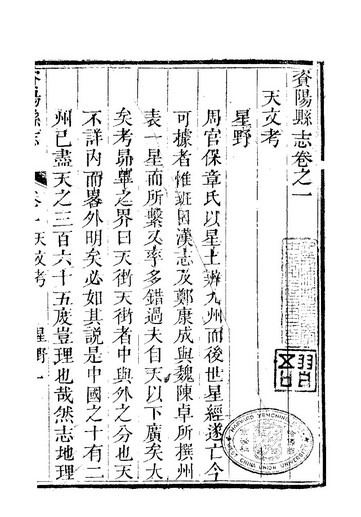 脊陽縣志卷之一
天文考
星野
周官保章氏以星土辨九州而後世星經遂亡今
可據者惟班固漢志及鄭康成與魏陳卓所撰州
表一星而所繫又率多錯過夫自天以下廣矣大
矣考昴畢之界曰天街天街者中與外之分也天
不詳內而畧外明矣必如其說是中國之十有二
州已盡天之三百六十五度豈理也哉然志地理
卷一天文考
星野一